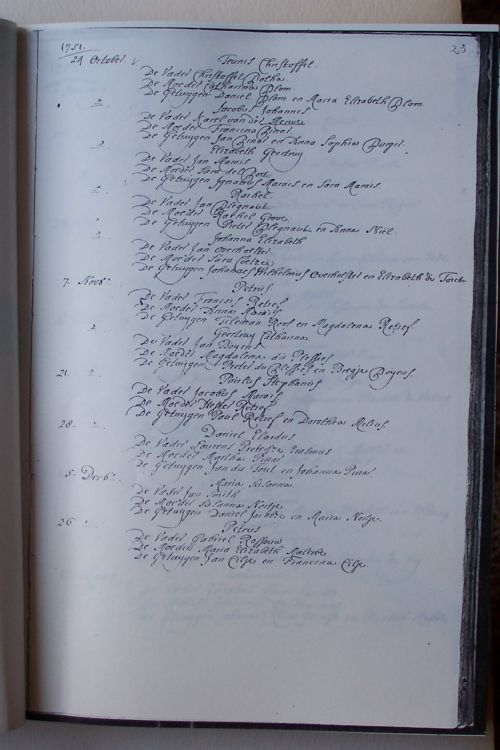 1751. 23
24 October. Teunis Christoffel.
De Vader Christoffel Botha.
De Moeder Catharina Blom.
De Getuygen Daniel Blom en Maria Elizabeth Blom.
Jacobus Johannes.
De Vader Karel van der Merwe
De Moeder Francina Pinar
De Getuygen Jan Pinar en Anna Sophia Burger.
Elizabeth Geertruy
De Vader Jan Marais.
De Moeder Sara de
De Getuygen Ignatius Marais en Sara Marais.
Rachel.
De Vader Jan Blegnaut
De Moeder Rachel
De Getuygen Pieter Blegnaut en Anna Niel.
Johanna Elizabeth
De Vader Jan Overholster
De Moeder Sara Coetzee
De Getuygen Johannes Wilhelmus Overholster en Elizabeth du Toict.
7. Novb. Petrus
De Vader Francis Retief
De Moeder Anna Marais
De Getuygen Tileman Roos en Magdalena Retief
Geertruy Catharina
De Vader Jan Booyens
De Moeder Magdalena du Plessies
De Getuygen Pieter du Plessies en Booyens.
21. Paulus Stephanus
De Vader Jacobus Marais
De Moeder Retief
De Getuygen Paul Retief en Dorothea
28. Daniel Elardus
De Vader Lourens Erasmus
De Moeder Martha Pinar
De Getuygen Jan du Toict en Johanna Pinar
5. Decb. Maria Susanna
De Vader Jan Smith
De Moeder Susanna Nortje
De Getuygen Daniel Jacobsz en Maria Nortje.
26 Petrus
De Vader Gabriel Rossouw
De Moeder Maria Elizabeth Malerbe
De Getuygen Jan Cilje en Francina Cilje.